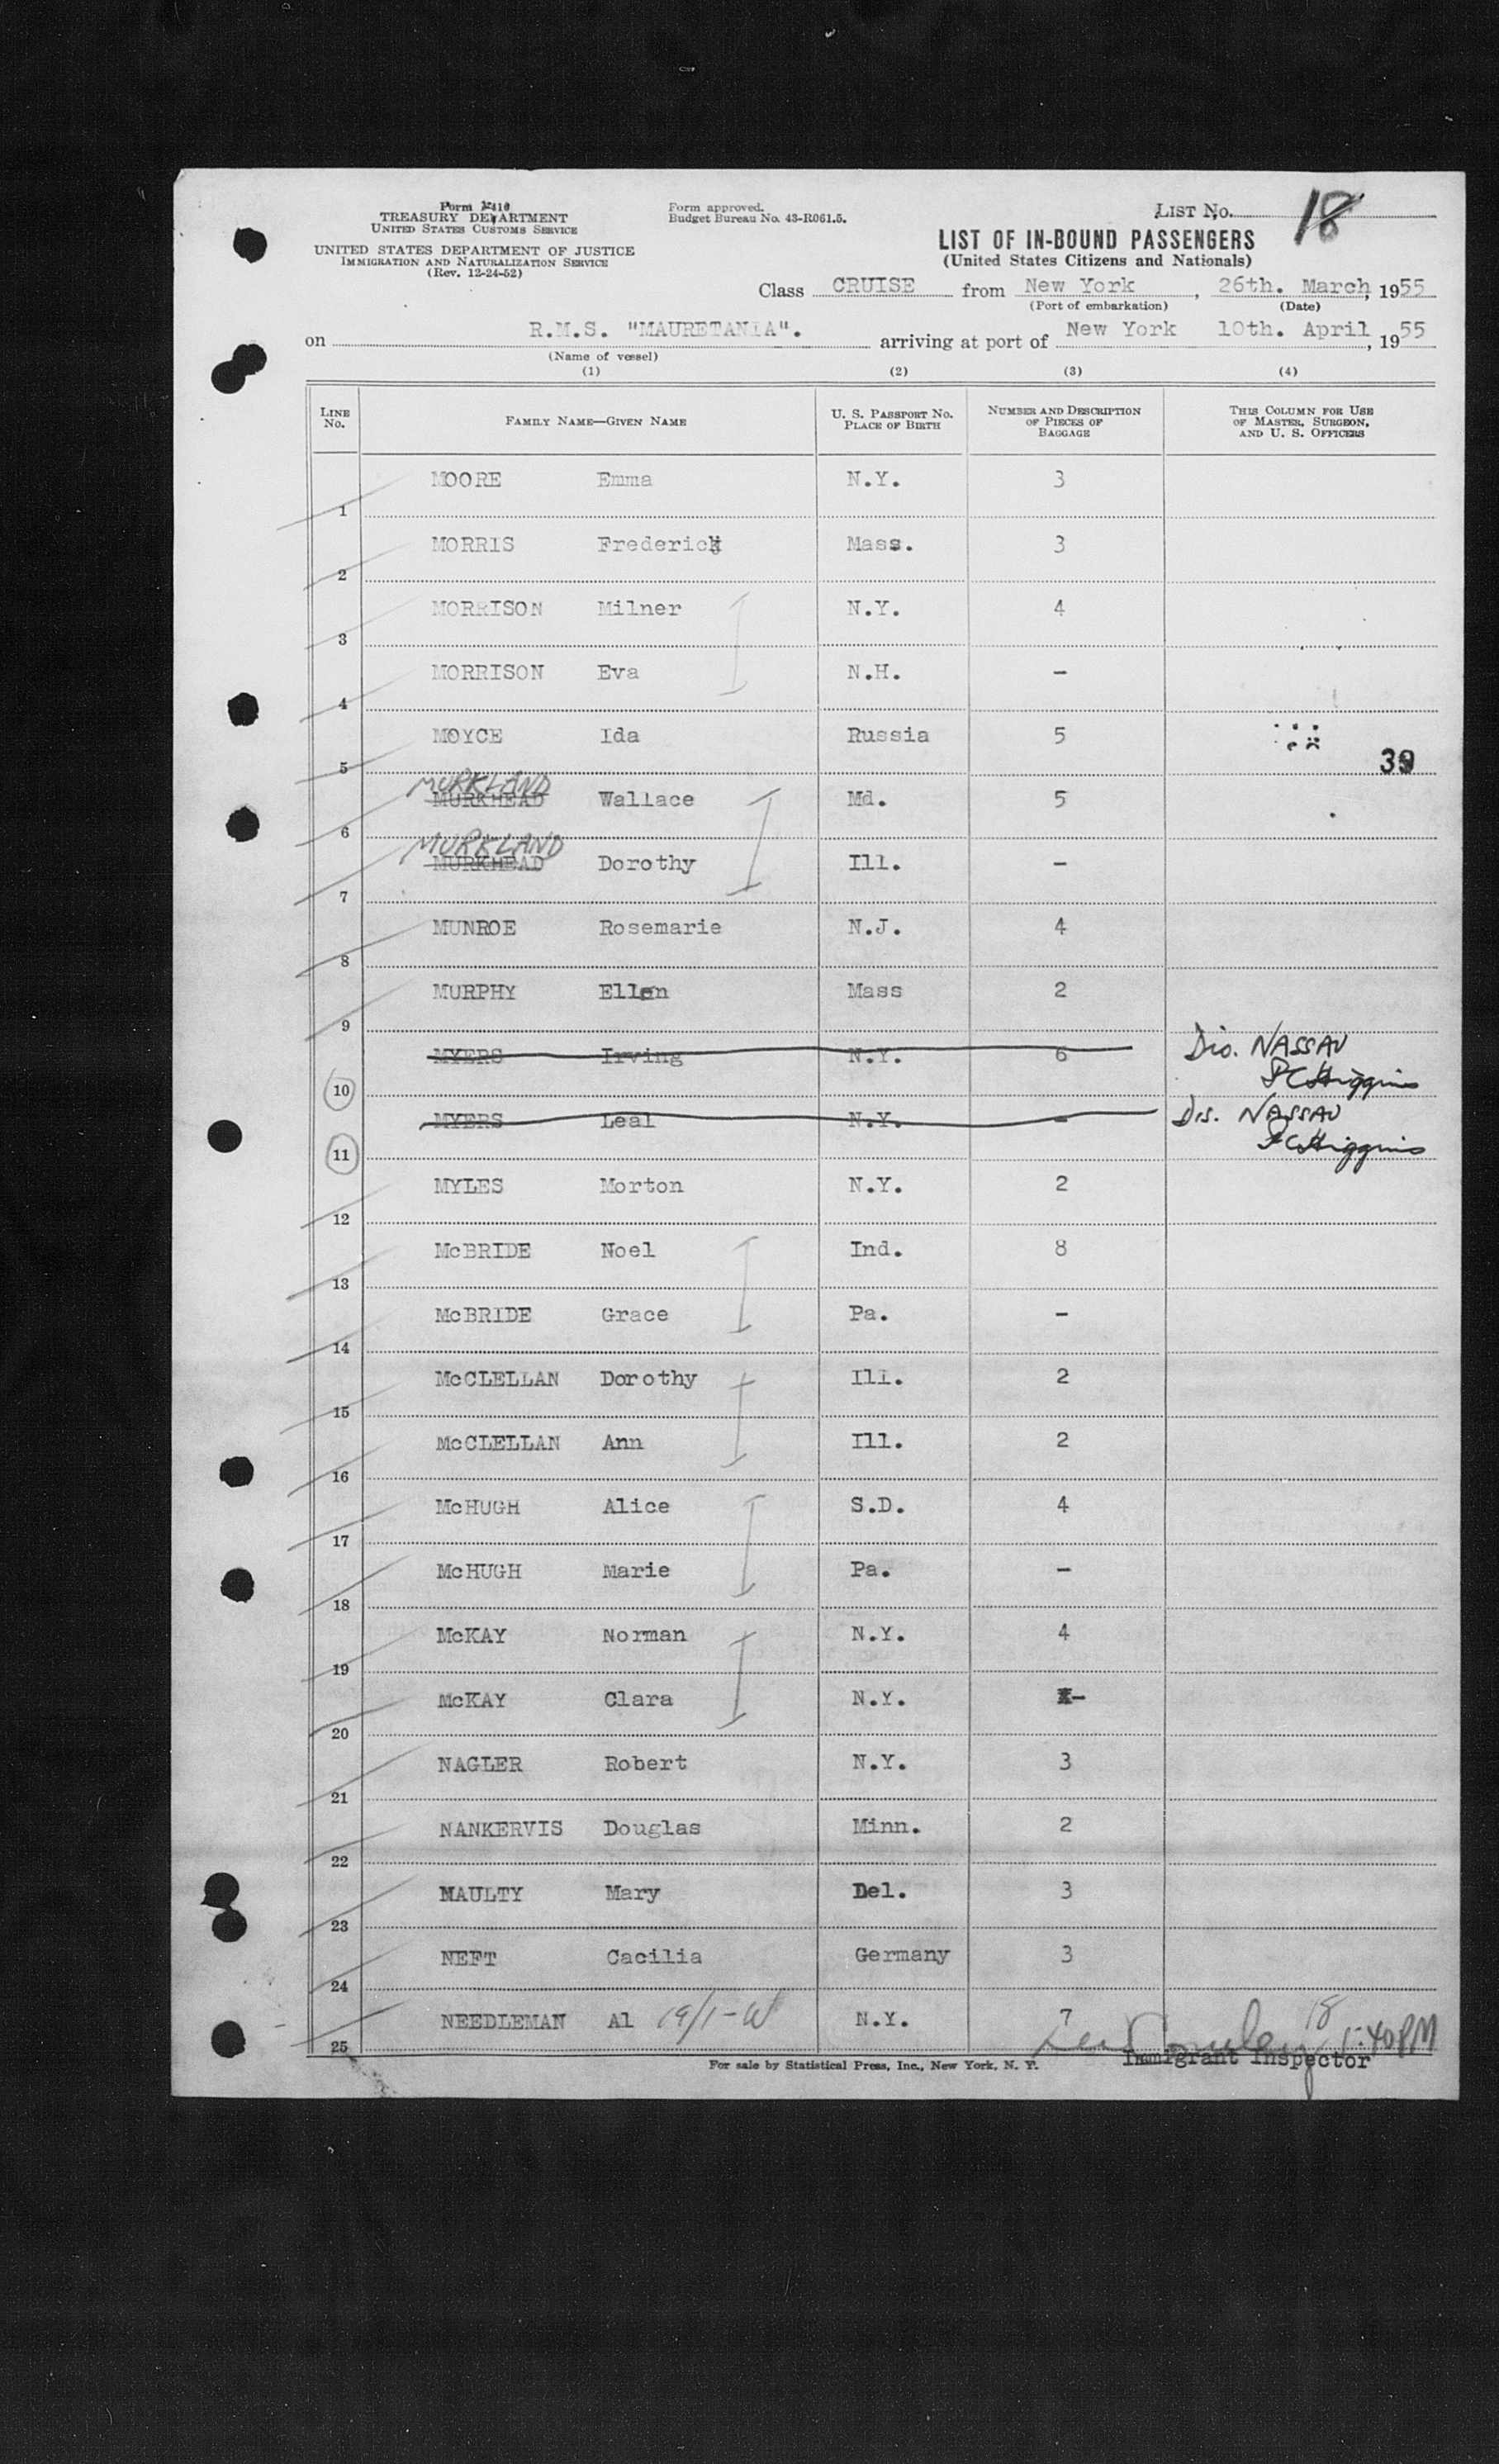 Form I-418
TREASURY DEPARTMENT
UNITED STATES CUSTOMS SERVICE
UNITED STATES DEPARTMENT OF JUSTICE
IMMIGRATION AND NATURALIZATION SERVICE
(Rev. 12-24-52)
Form approved.
Budget Bureau No. 43-R061.5.
LIST No. 18
LIST OF IN-BOUND PASSENGERS
(United States Citizens and Nationals)
Class CRUISE from New York, 26th. March, 1955
(Port of embarkation) (Date)
on R.M.S. "MAURETANIA". arriving at port of New York 10th. April, 1955
(Name of vessel)
(1) (2) (3) (4)
LINE No. FAMILY NAME—GIVEN NAME U. S. PASSPORT NO. PLACE OF BIRTH NUMBER AND DESCRIPTION OF PIECES OF BAGGAGE THIS COLUMN FOR USE OF MASTER, SURGEON, AND U. S. OFFICERS
1 MOORE Emma N.Y. 3
2 MORRIS Frederick Mass. 3
3 MORRISON Milner N.Y. 4
4 MORRISON Eva N.H. -
5 MOYCE Ida Russia 5 39
MURKLAND
6 MURKHEAD Wallace Md. 5
MURKLAND
7 MURKHEAD Dorothy Ill. -
8 MUNROE Rosemarie N.J. 4
9 MURPHY Ellen Mass 2
10 MYERS Irving N.Y. 6 Dis. NASSAU
PCHiggins
11 MYERS Leal N.Y. - Dis. NASSAU
PCHiggins
12 MYLES Morton N.Y. 2
13 McBRIDE Noel Ind. 8
14 McBRIDE Grace Pa. -
15 McCLELLAN Dorothy Ill. 2
16 McCLELLAN Ann Ill. 2
17 McHUGH Alice S.D. 4
18 McHUGH Marie Pa. -
19 McKAY Norman N.Y. 4
20 McKAY Clara N.Y. -
21 NAGLER Robert N.Y. 3
22 NANKERVIS Douglas Minn. 2
23 NAULTY Mary Del. 3
24 NEFT Cacilia Germany 3
25 NEEDLEMAN Al 19/1-W N.Y. 7
18 1:40PM
Immigrant Inspector
For sale by Statistical Press, Inc., New York, N. Y.